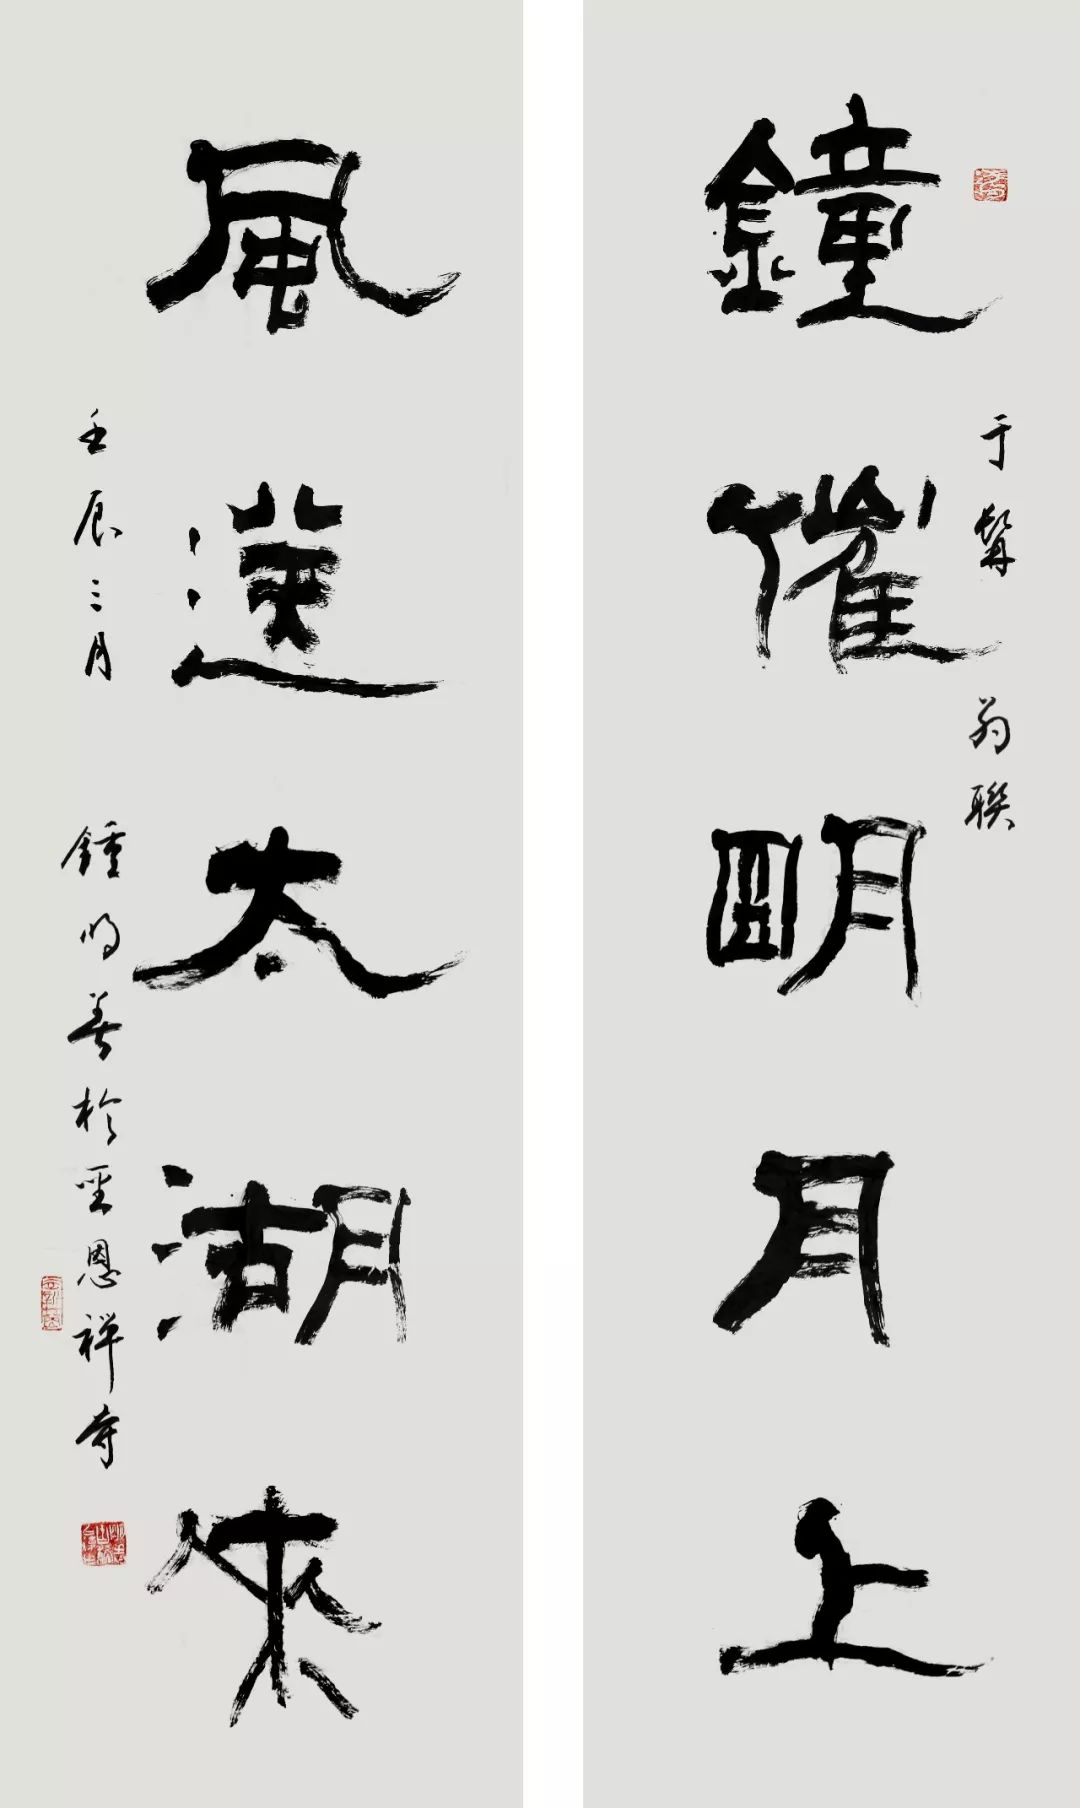 鐘催明月上
于髯翁聯
風送太湖來
壬辰三月
鍾明善於聖恩禅寺